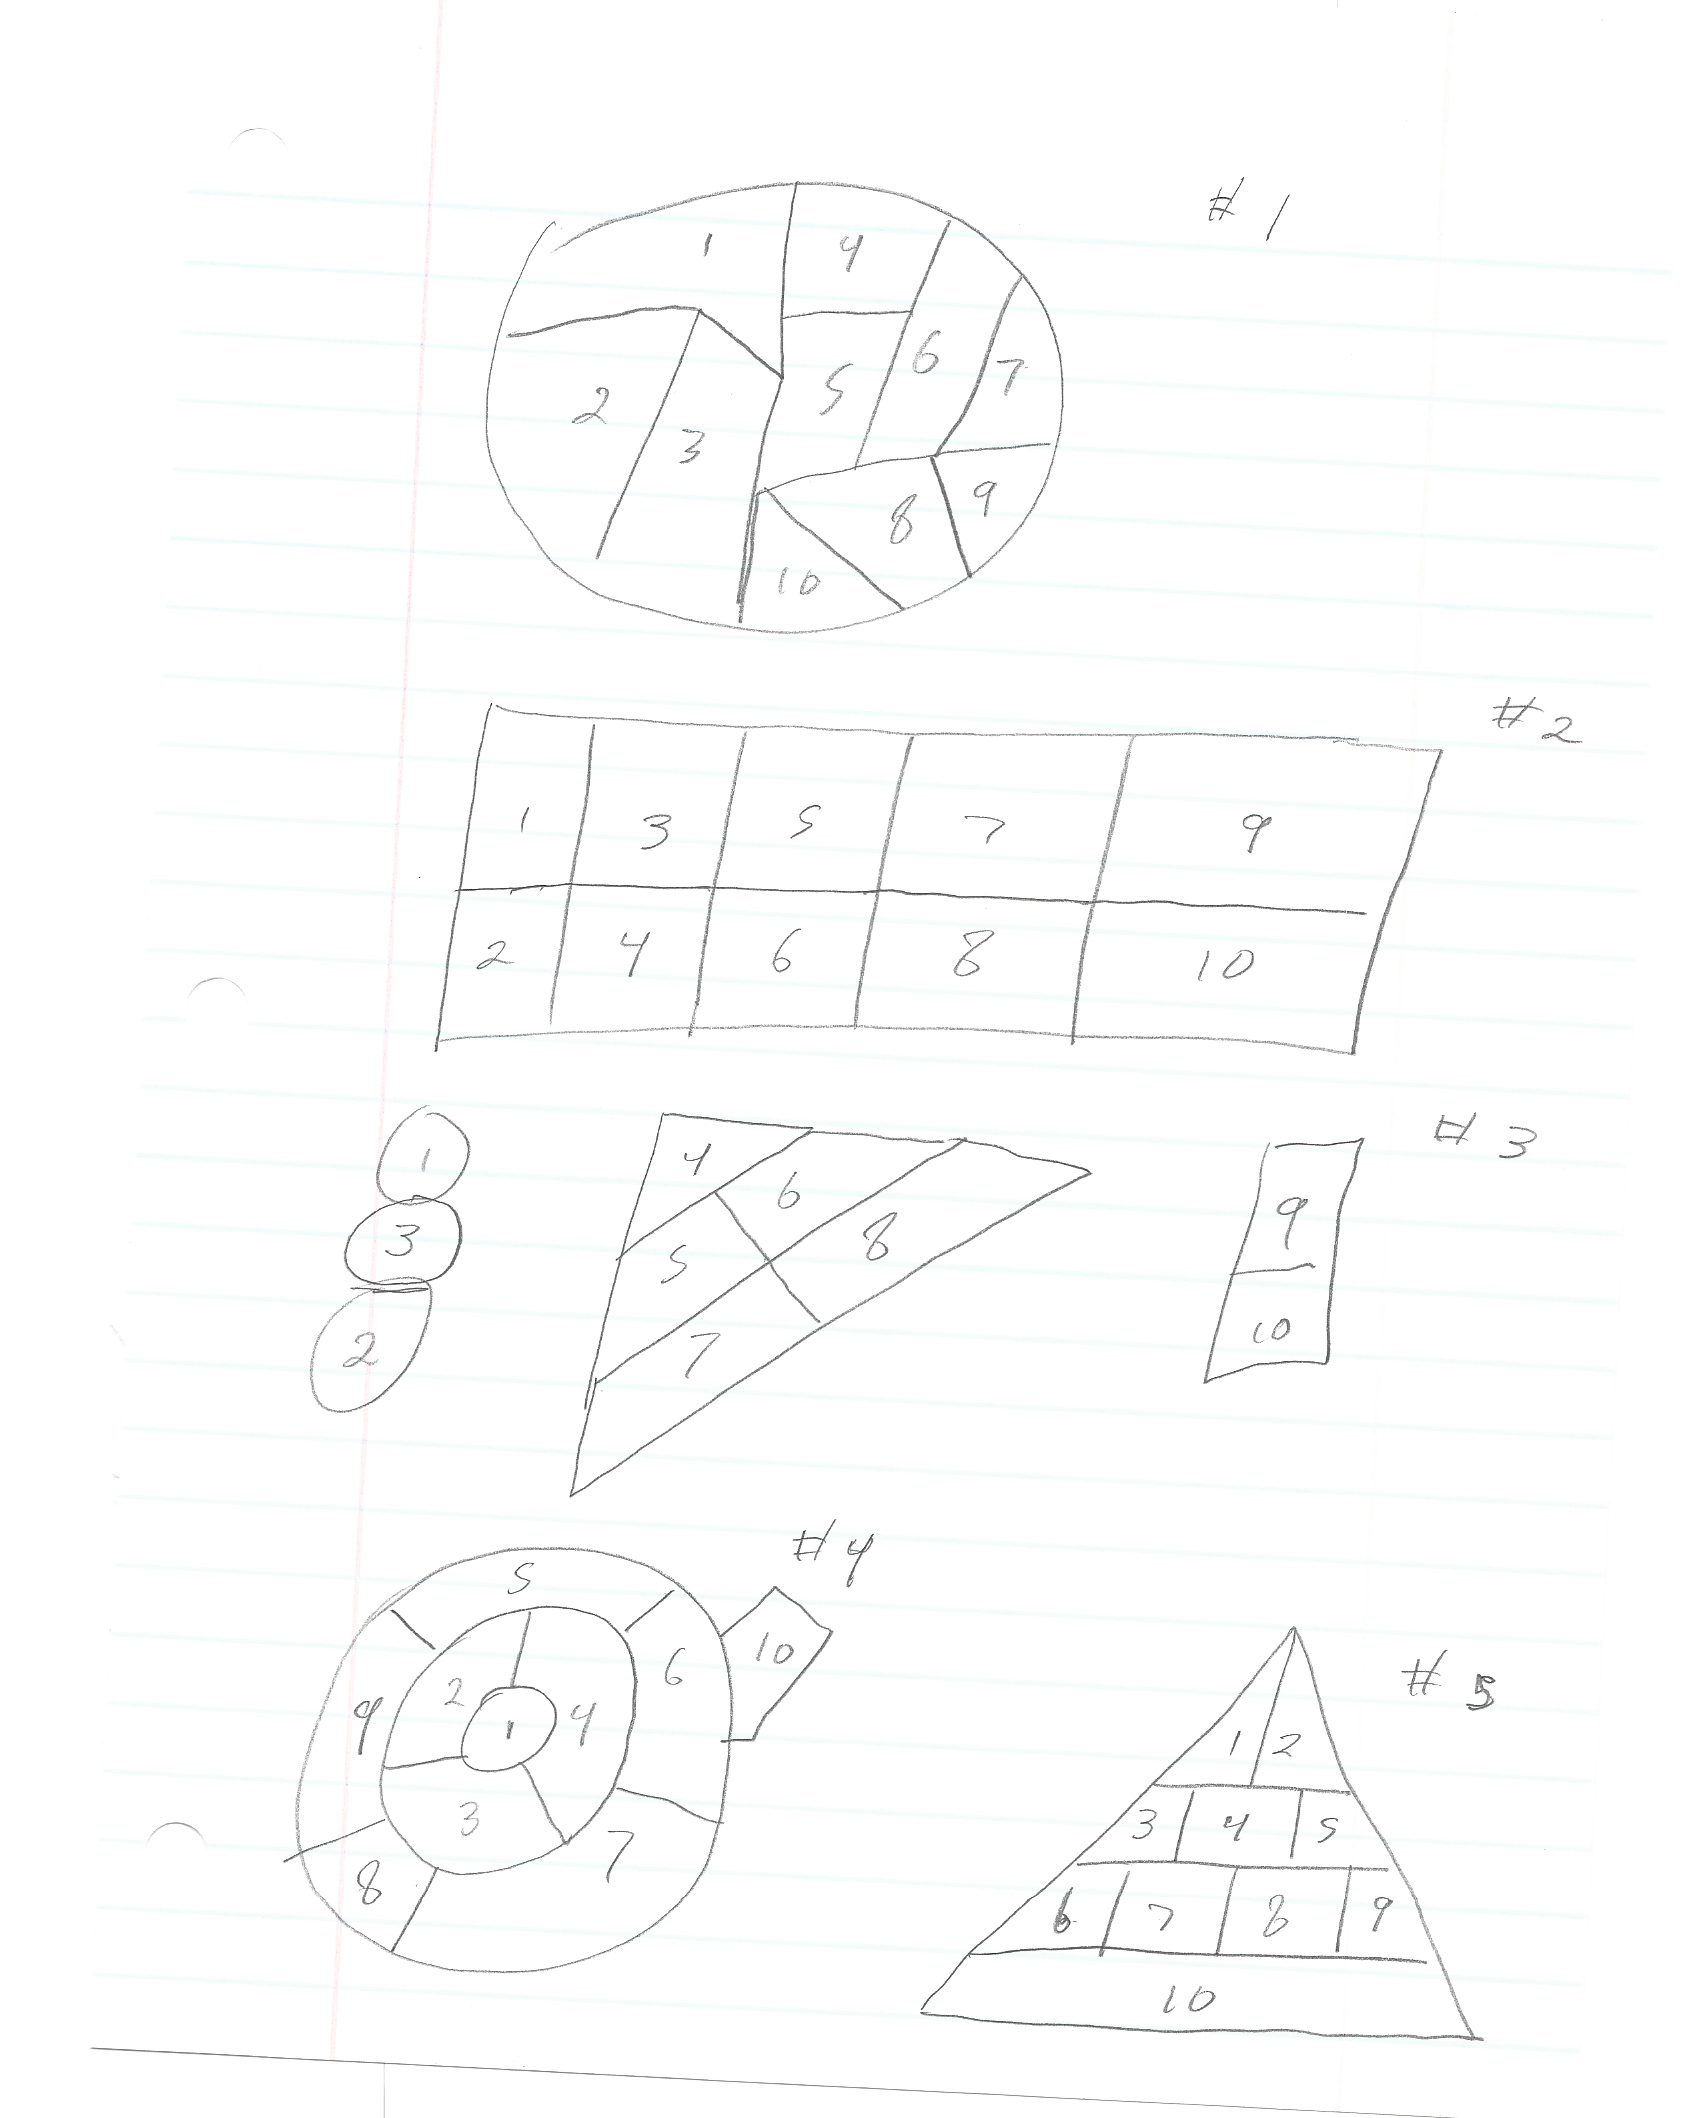 # 1
1 4
6 7
2 5
3
8 9
10
# 2
1 3 5 7 9
2 4 6 8 10
# 3
1 4 6 9
3 5 8
2 7 10
# 4
5
10
2 6
9 1 4
3 7
8
# 5
1 2
3 4 5
6 7 8 9
10